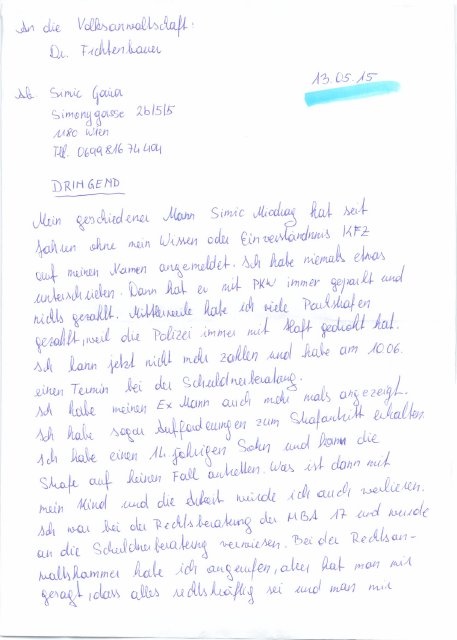 An die Volksanwaltschaft
Dr. Fichtenbauer
13.05.15
Ab. Simic Gorica
Simonygasse 2b/5/5
1180 Wien
Tel. 0699 816 74 404
DRINGEND
Mein geschiedener Mann Simic Miodrag hat seit
Jahren ohne mein Wissen oder Einverständnis KFZ
auf meinen Namen angemeldet. Ich habe niemals etwas
unterschrieben. Dann hat er mit PKW immer geparkt und
nichts gezahlt. Mittlerweile habe ich viele Parkstrafen
gezahlt, weil die Polizei immer mit Haft gedroht hat.
Ich kann jetzt nicht mehr zahlen und habe am 10.06.
einen Termin bei der Schuldnerberatung.
Ich habe meinen Ex Mann auch mehrmals angezeigt.
Ich habe sogar Aufforderungen zum Strafantritt erhalten.
Ich habe einen 14 jährigen Sohn und kann die
Strafe auf keinen Fall antreten. Was ist dann mit
mein Kind und die Arbeit würde ich auch verlieren.
Ich war bei der Rechtsberatung der MBA 17 und wurde
an die Schuldnerberatung verwiesen. Bei der Rechtsan-
waltskammer habe ich angerufen, aber hat man mir
gesagt, dass alles rechtskräftig sei und man mir